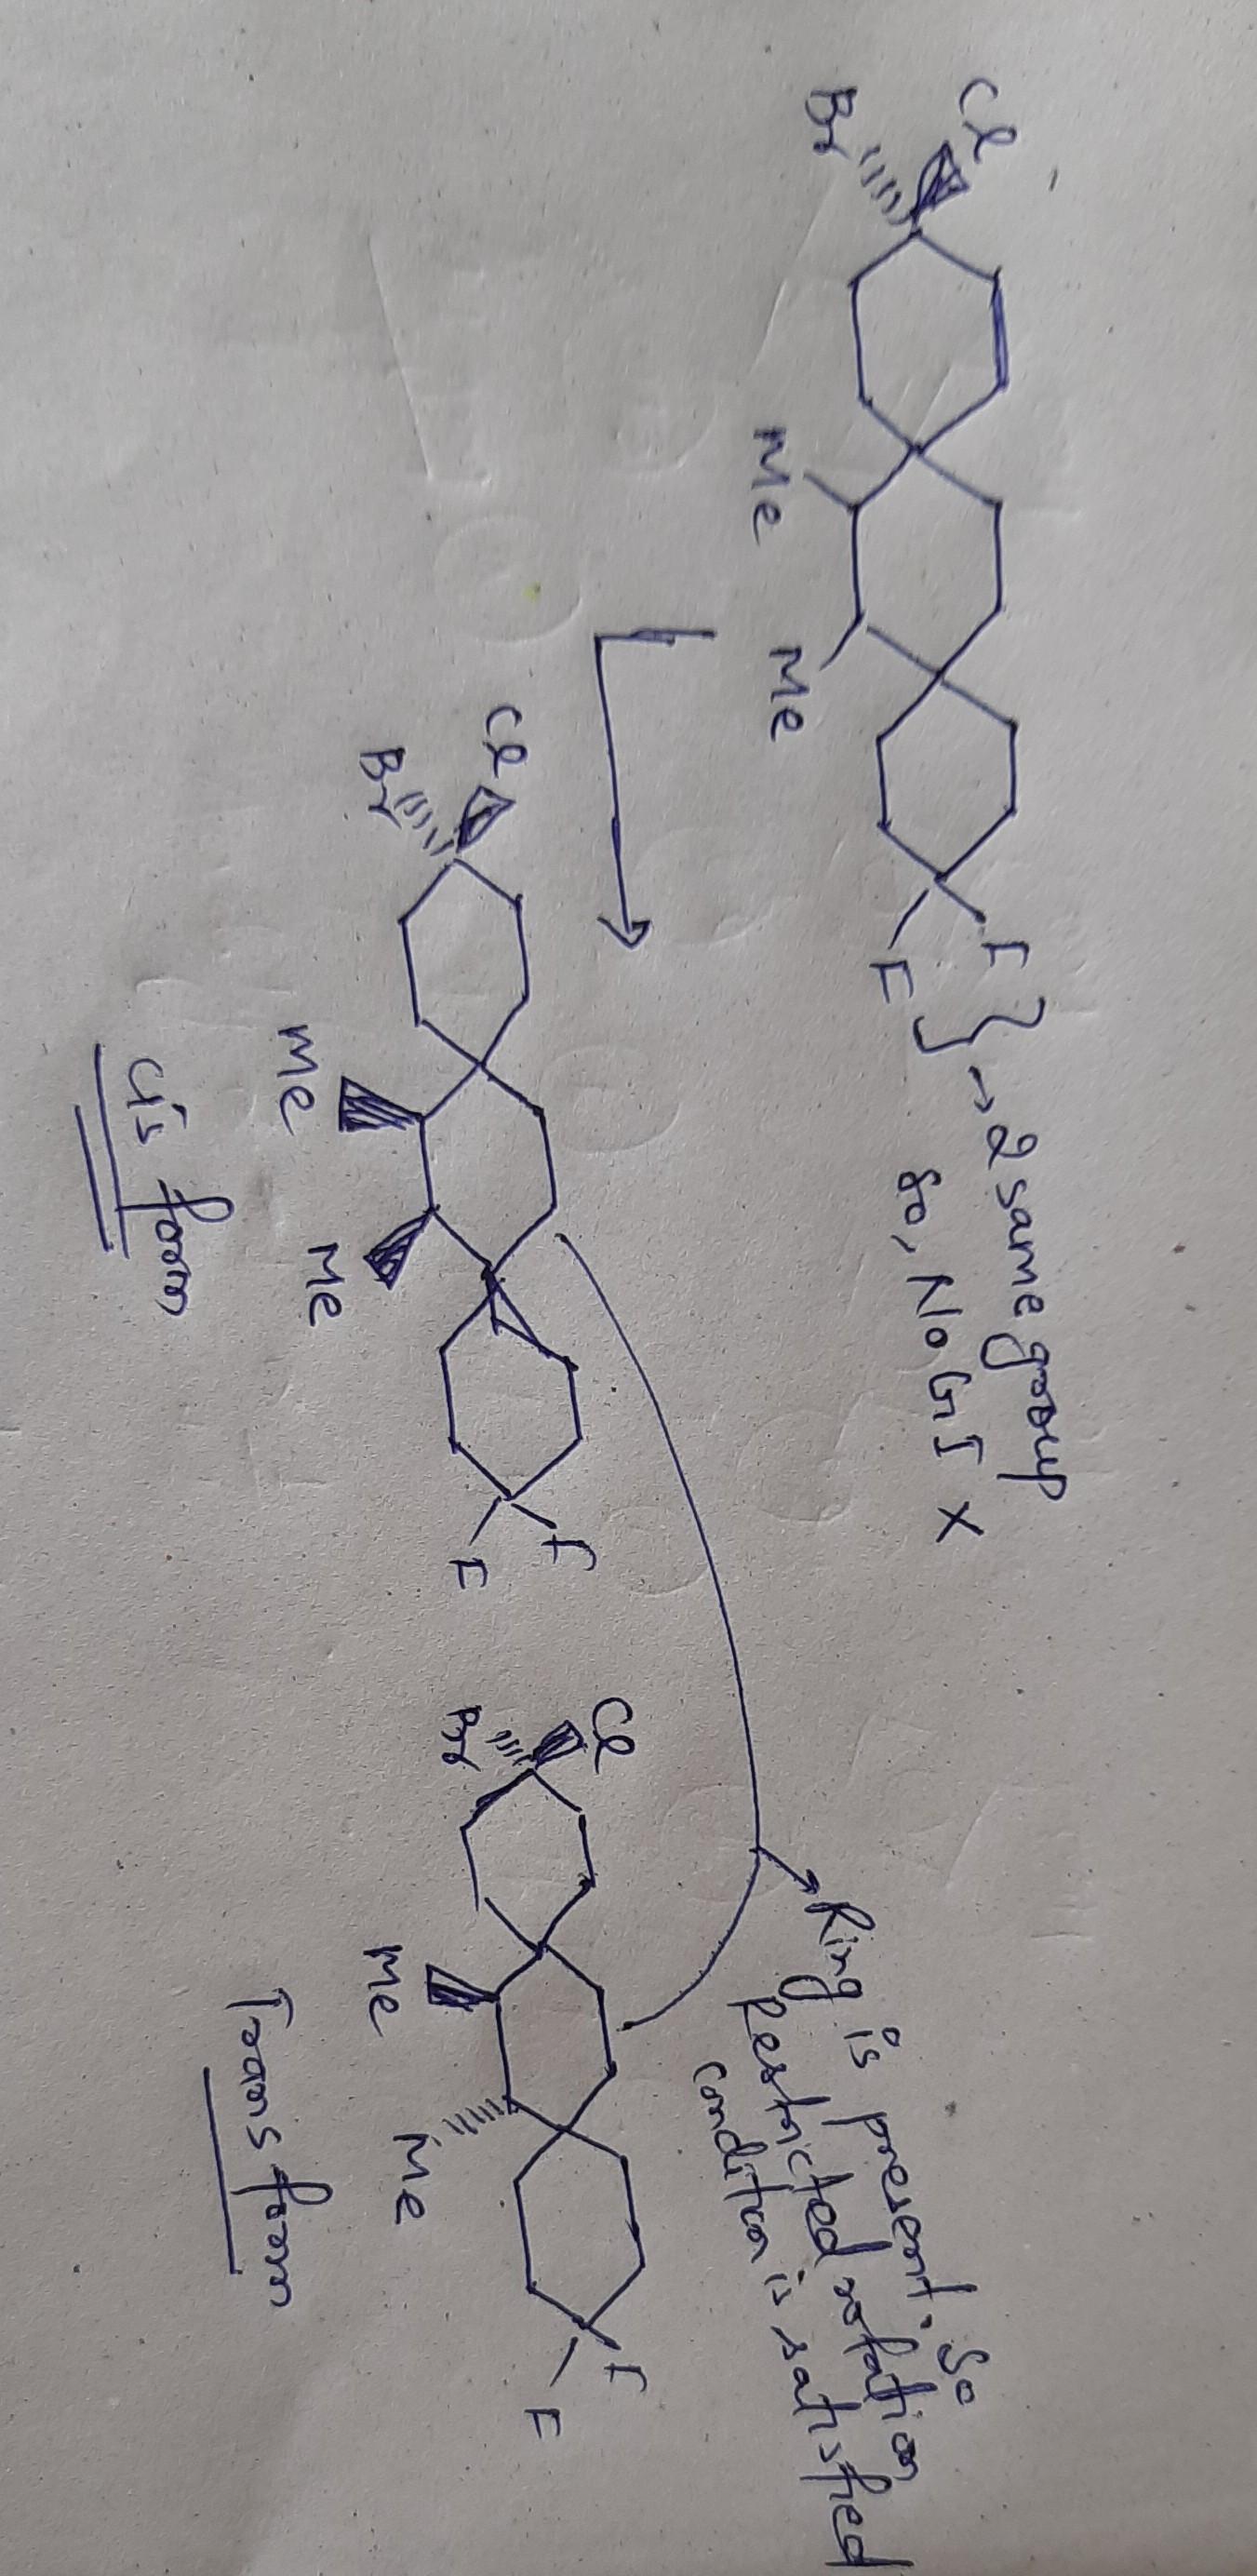 Cl
Br
Me
Me
F
F
→ 2 same group
So, No GI X
Cl
Br
Me
Me
F
F
Cis form
Cl
Br
Me
Me
F
F
Trans form
Ring is present. So
Restricted rotation
condition is satisfied